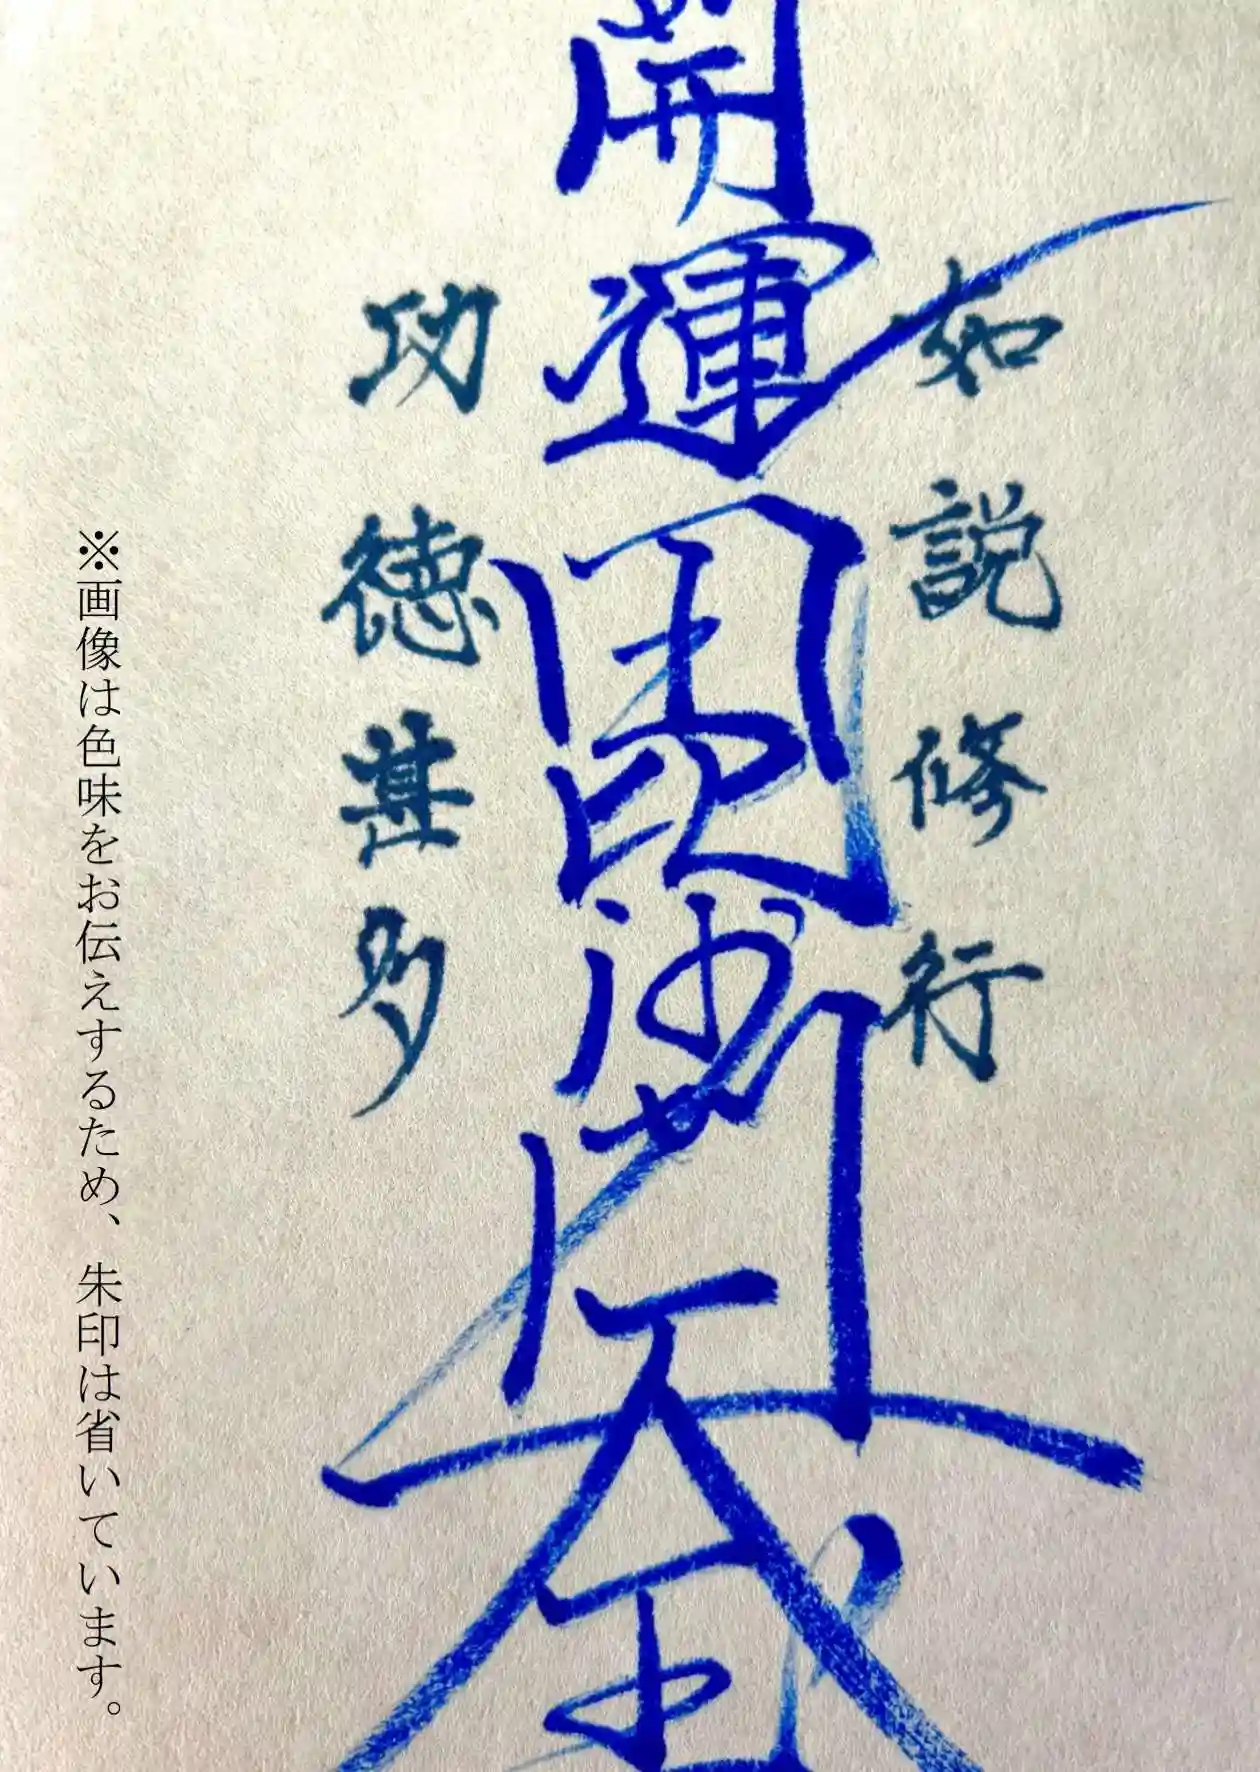 如説修行
開運毘沙門天
功徳甚多
※画像は色味をお伝えするため、朱印は省いています。